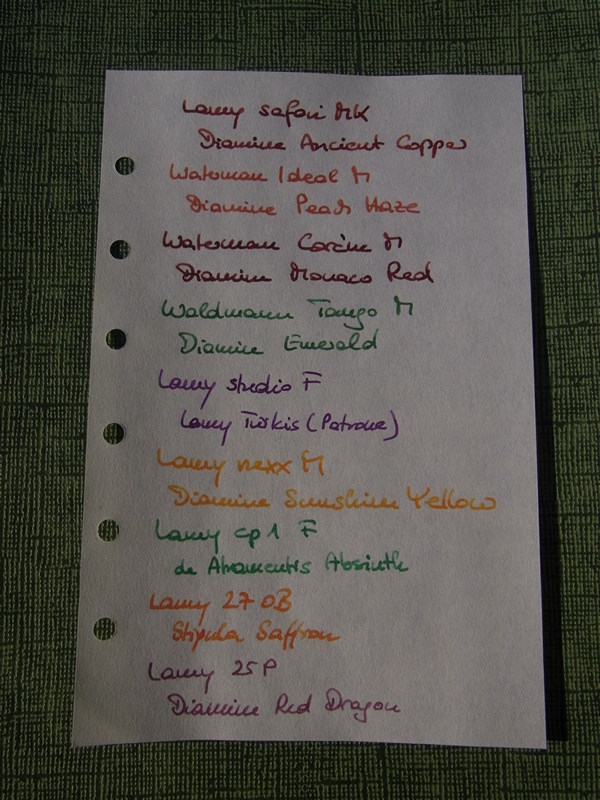 Lamy safari MK
Diamine Ancient Copper
Waterman Ideal M
Diamine Peach Haze
Waterman Carène M
Diamine Monaco Red
Waldmann Tango M
Diamine Emerald
Lamy studio F
Lamy Türkis (Patrone)
Lamy nexx M
Diamine Sunshine Yellow
Lamy cp1 F
de Atramentis Absinth
Lamy 27 OB
Stipula Saffron
Lamy 25P
Diamine Red Dragon